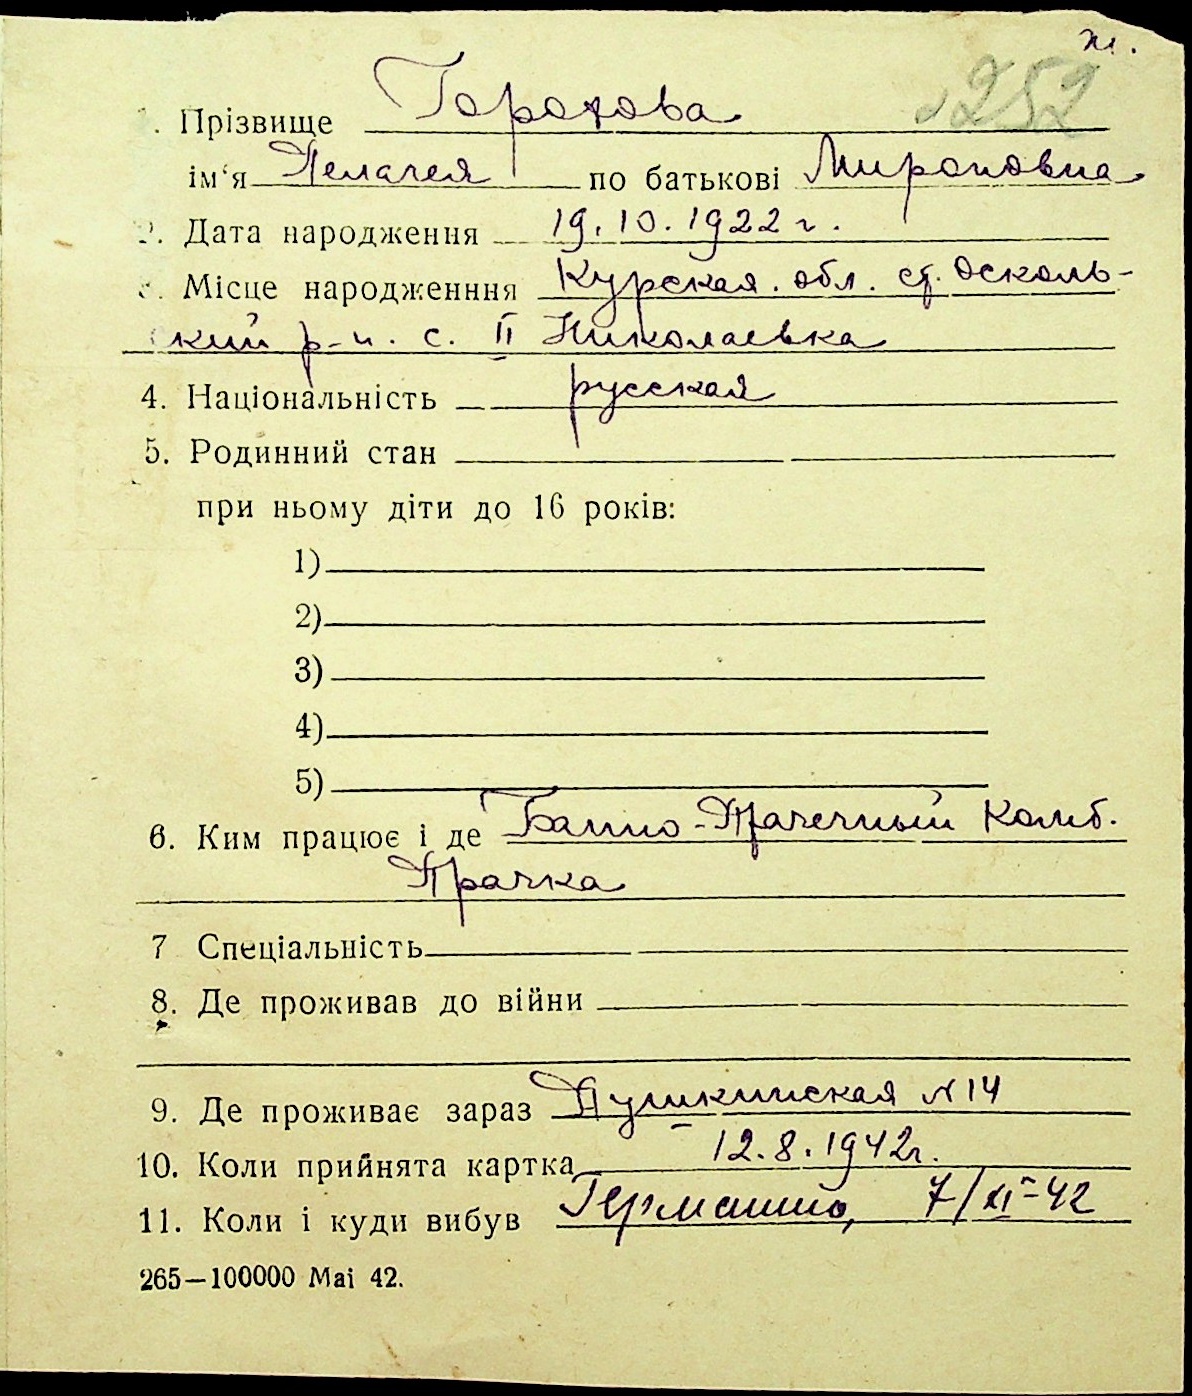 ж.
252
1. Прізвище Горохова
ім'я Пелагея по батькові Мироновна
2. Дата народження 19.10.1922 г.
3. Місце народженння Курская. обл. ст. Осколь-
ский р-н. с. II Николаевка
4. Національність русская
5. Родинний стан
при ньому діти до 16 років:
1)
2)
3)
4)
5)
6. Ким працює і де Банно-Прачечный Комб.
Прачка
7 Спеціальність
8. Де проживав до війни
9. Де проживає зараз Пушкинская № 14
10. Коли прийнята картка 12.8.1942г.
11. Коли і куди вибув Германию, 7/XI-42
265—100000 Mai 42.